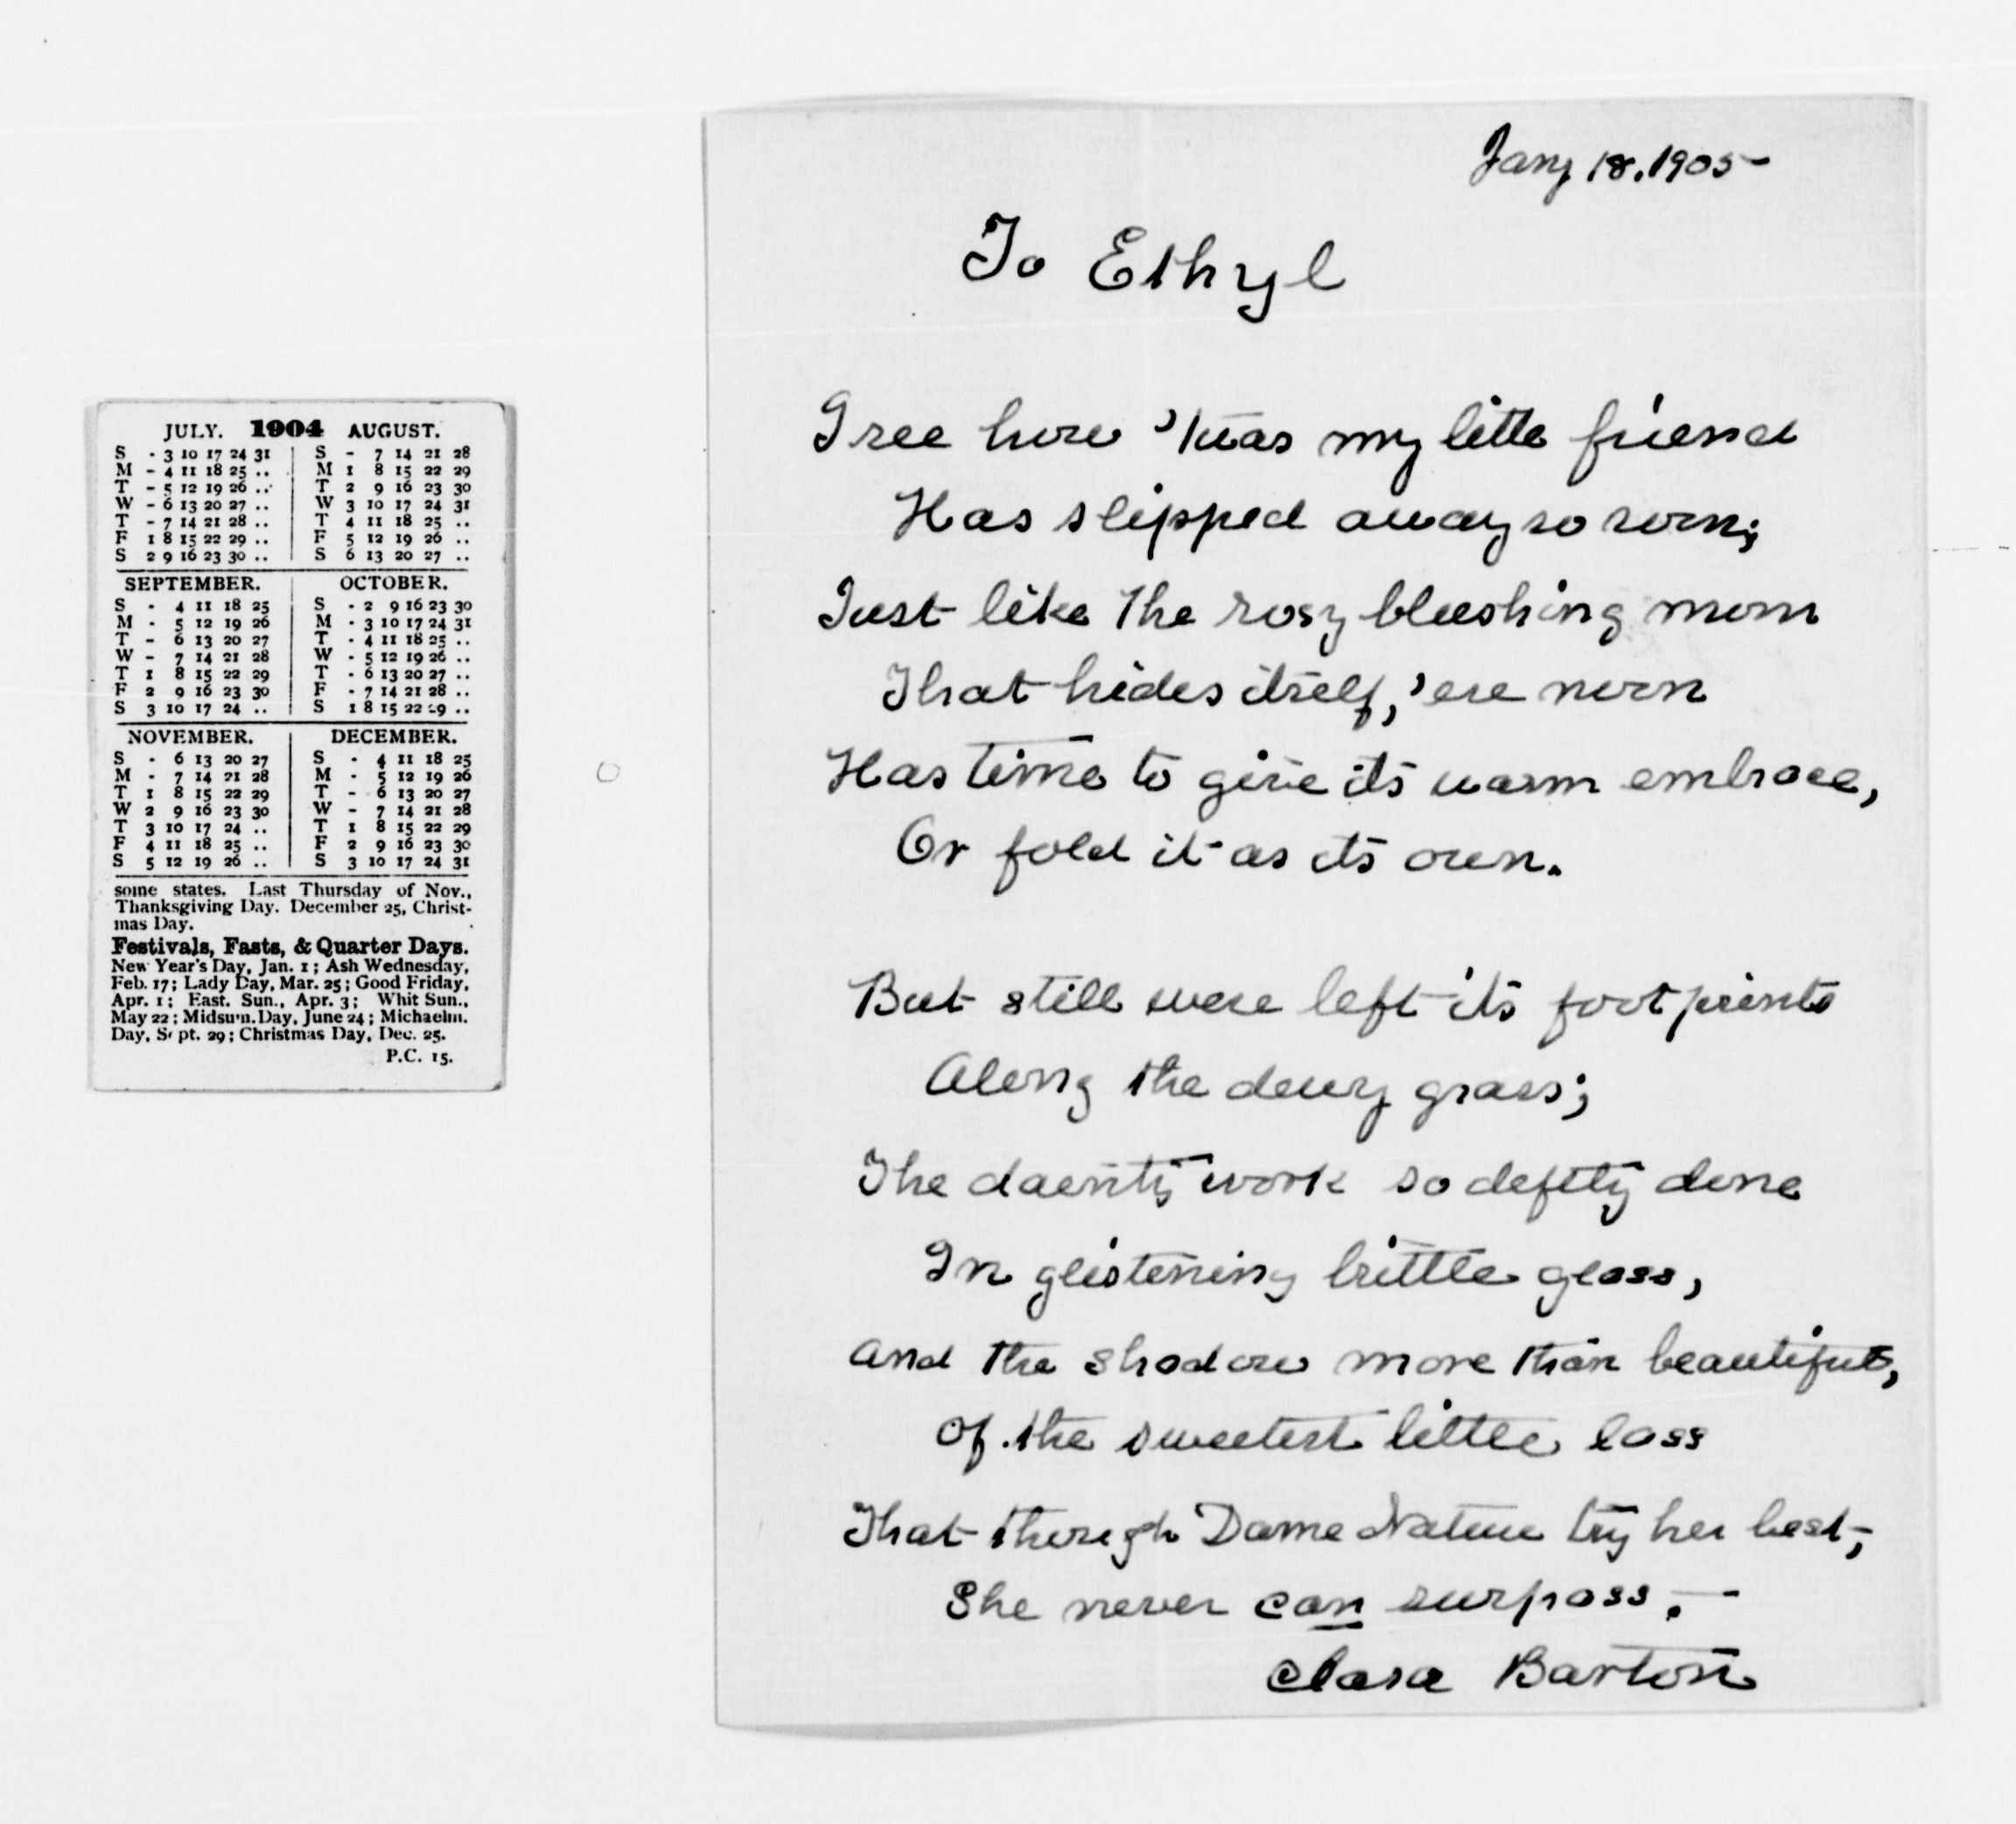 JULY. 1904 AUGUST.
S - 3 10 17 24 31 | S - 7 14 21 28
M - 4 11 18 25 .. | M 1 8 15 22 29
T - 5 12 19 26 .. | T 2 9 16 23 30
W - 6 13 20 27 .. | W 3 10 17 24 31
T - 7 14 21 28 .. | T 4 11 18 25 ..
F 1 8 15 22 29 .. | F 5 12 19 26 ..
S 2 9 16 23 30 .. | S 6 13 20 27 ..
SEPTEMBER. | OCTOBER.
S - 4 11 18 25 | S - 2 9 16 23 30
M - 5 12 19 26 | M - 3 10 17 24 31
T - 6 13 20 27 | T - 4 11 18 25 ..
W - 7 14 21 28 | W - 5 12 19 26 ..
T 1 8 15 22 29 | T - 6 13 20 27 ..
F 2 9 16 23 30 | F - 7 14 21 28 ..
S 3 10 17 24 .. | S 1 8 15 22 29 ..
NOVEMBER. | DECEMBER.
S - 6 13 20 27 | S - 4 11 18 25
M - 7 14 21 28 | M - 5 12 19 26
T 1 8 15 22 29 | T - 6 13 20 27
W 2 9 16 23 30 | W - 7 14 21 28
T 3 10 17 24 .. | T 1 8 15 22 29
F 4 11 18 25 .. | F 2 9 16 23 30
S 5 12 19 26 .. | S 3 10 17 24 31
some states. Last Thursday of Nov.,
Thanksgiving Day. December 25, Christ-
mas Day.
Festivals, Fasts, & Quarter Days.
New Year's Day, Jan. 1; Ash Wednesday,
Feb. 17; Lady Day, Mar. 25; Good Friday,
Apr. 1; East. Sun., Apr. 3; Whit Sun.,
May 22; Midsum. Day, June 24; Michaelm.
Day, Sept. 29; Christmas Day, Dec. 25.
P.C. 15.
Jany 18. 1905-
To Ethyl
I see how 'twas my little friend
Has slipped away so soon;
Just like the rosy blushing morn
That hides itself, 'ere noon
Has time to give its warm embrace,
Or fold it as its own.
But still were left its foot prints
Along the dewy grass;
The dainty work so deftly done
In glistening brittle glass,
and the shadow more than beautiful,
Of the sweetest little lass
That though Dame Nature try her best,
She never can surpass. -
Clara Barton